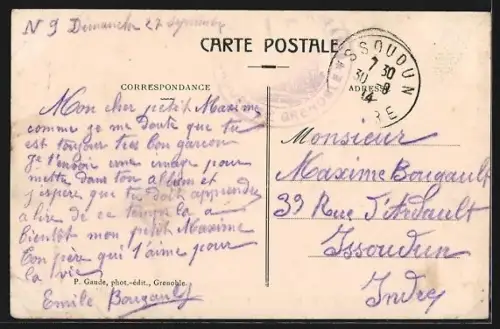 N 9 Dimanche 27 Septembre
CARTE POSTALE
CORRESPONDANCE
ADRESSE
Mon cher petit Maxime
comme je me doute que tu
est toujour tres bon garcon
je t'envoie une image pour
mettre dans ton album et
j'espere que tu doit apprendre
a lire de ce temps la a
bientot mon petit Maxime
ton père qui t'aime pour
la vie
Emile Bougault
P. Gaude, phot.-édit., Grenoble.
GRENOBLE
ISSOUDUN
7 30
30 -9
14
Monsieur
Maxime Bougault
39 Rue d'Ardault
Issoudun
Indre